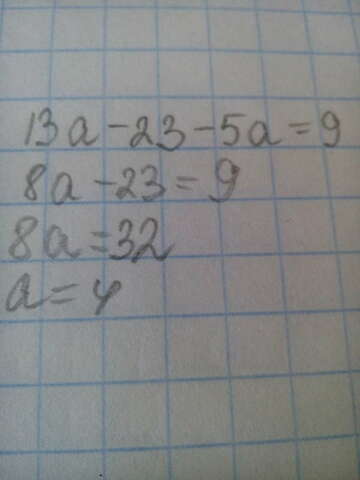 13a-23-5a=9
8a-23=9
8a=32
a=4